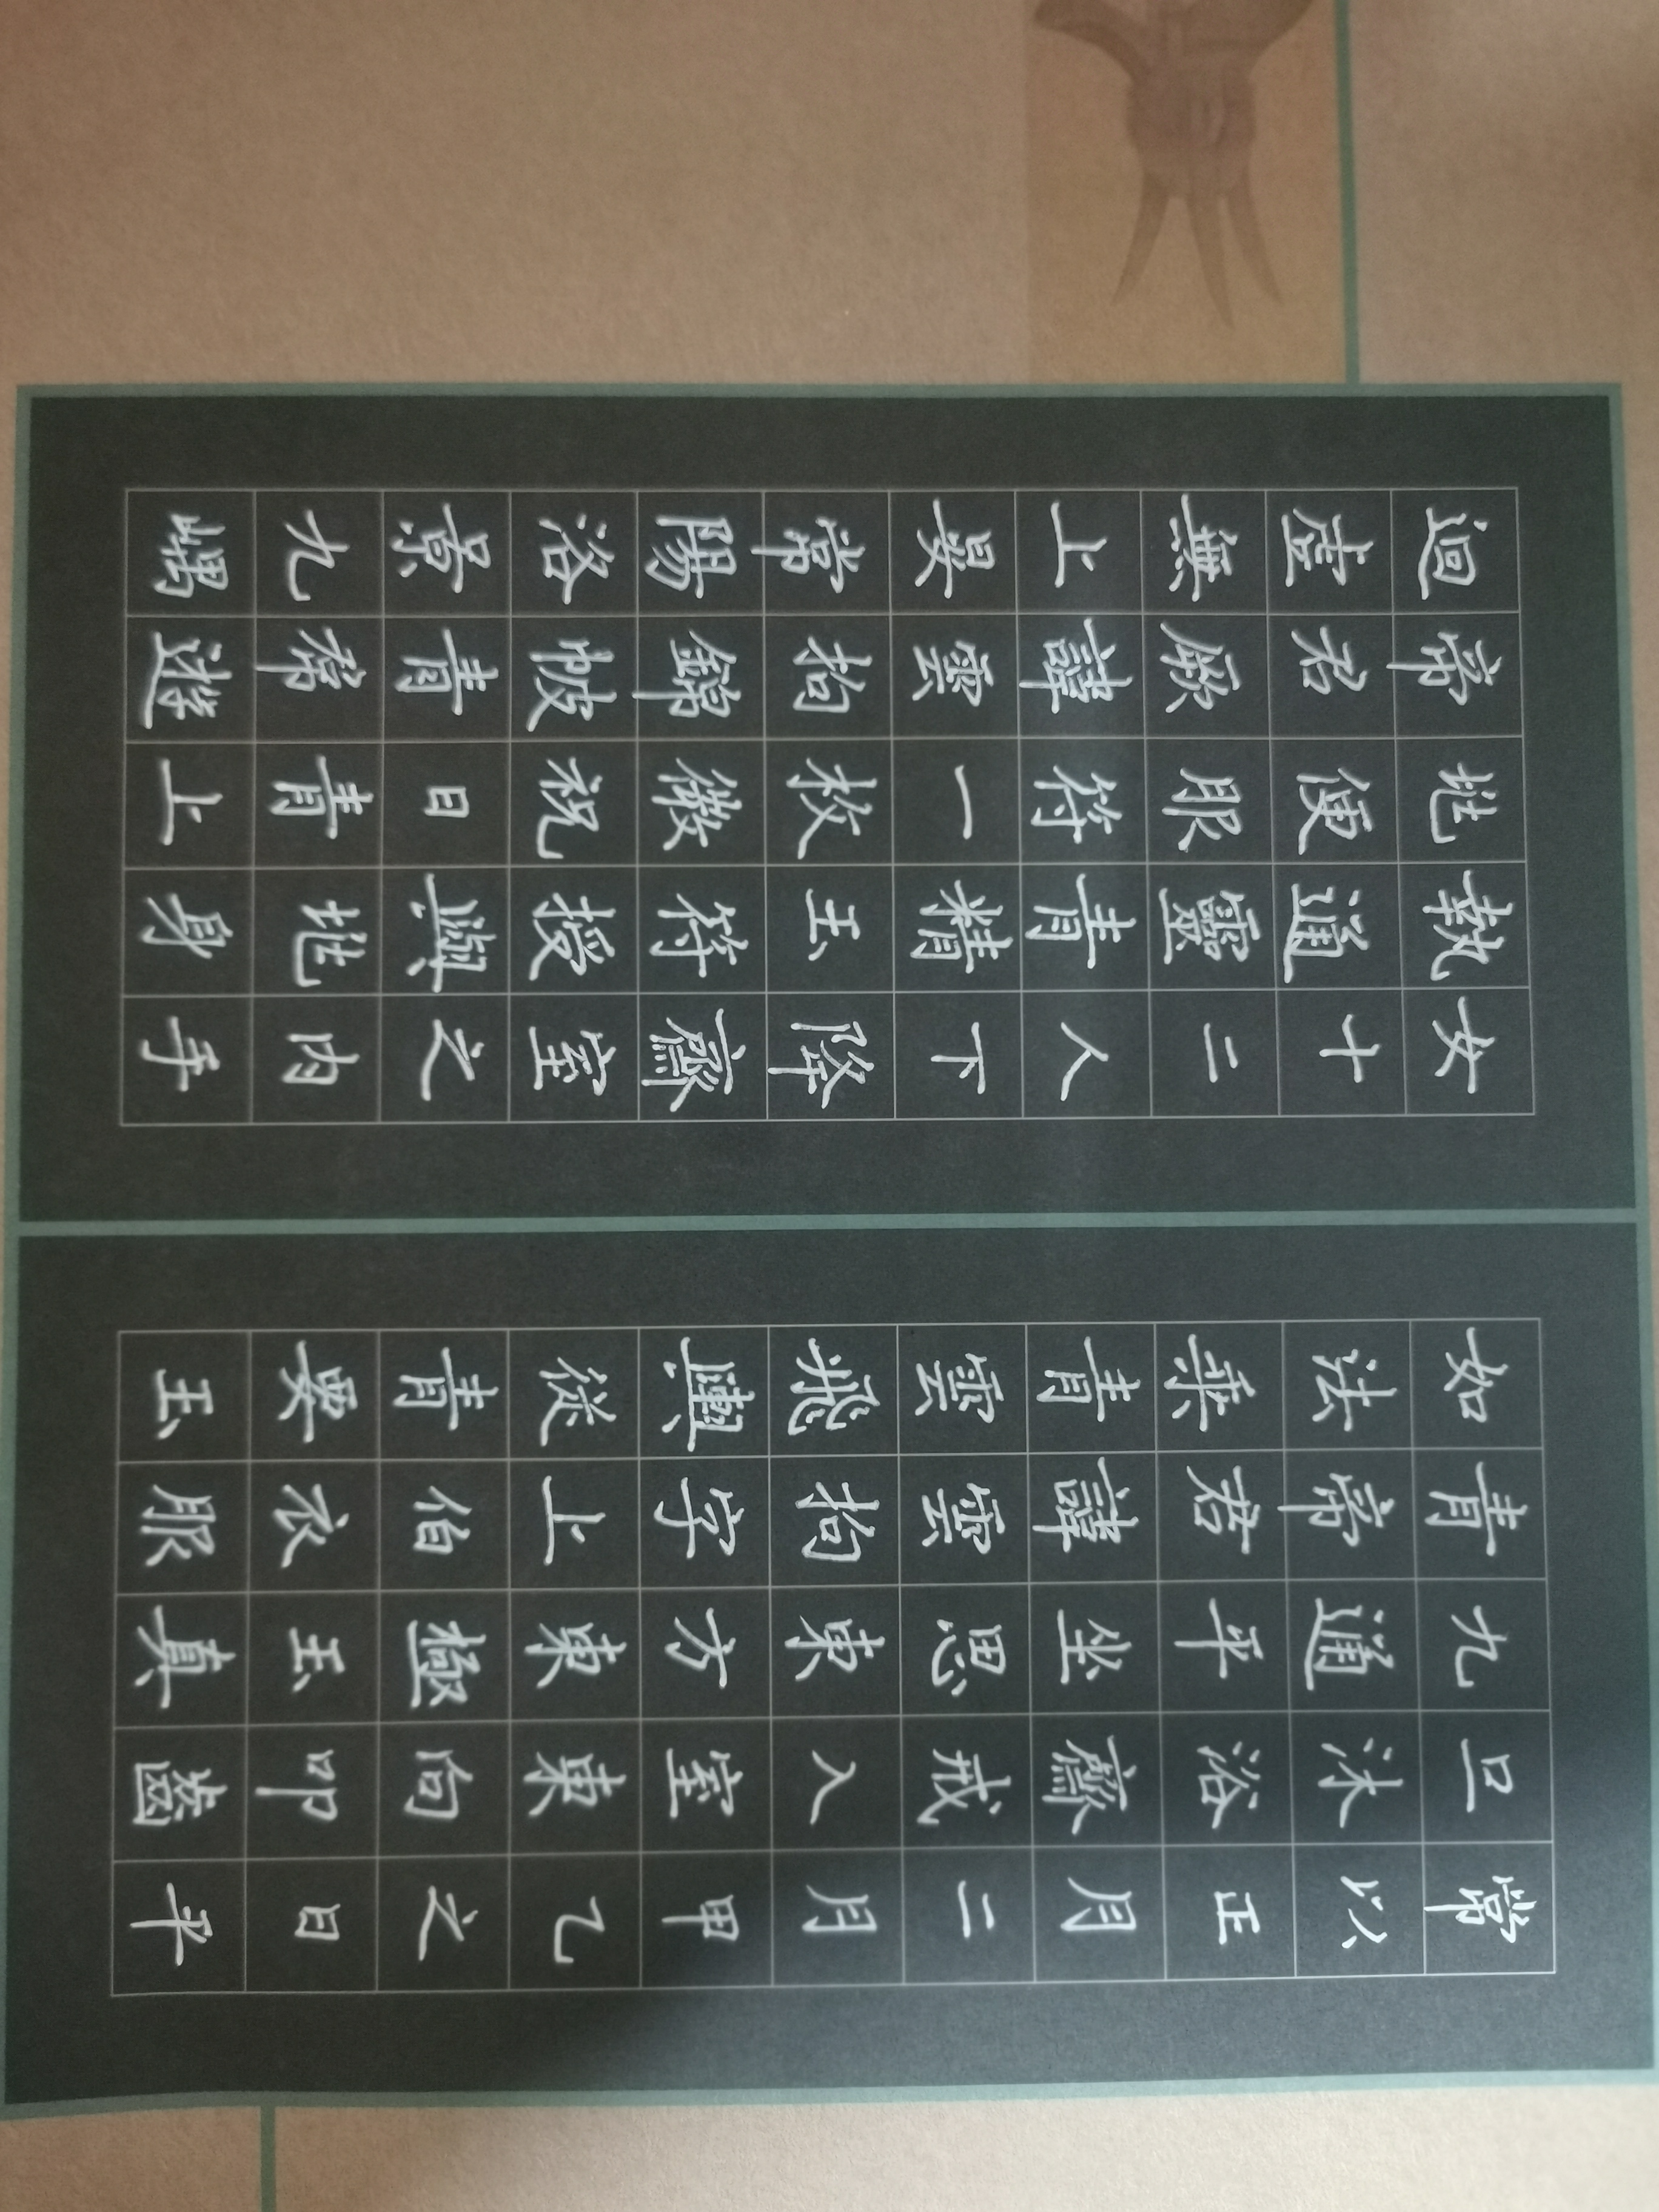 常以正月二月甲乙之日平
旦沐浴齋戒入室東向叩齒
九通平坐思東方東極玉真
青帝君諱雲拘字上伯衣服
如法乘青雲飛輿從青要玉
女十二人下降齋室之內手
執通靈青精玉符授與兆身
兆便服符一枚微祝曰青上
帝君厥諱雲拘錦帔青帬遊
迴虛無上晏常陽洛景九嵎